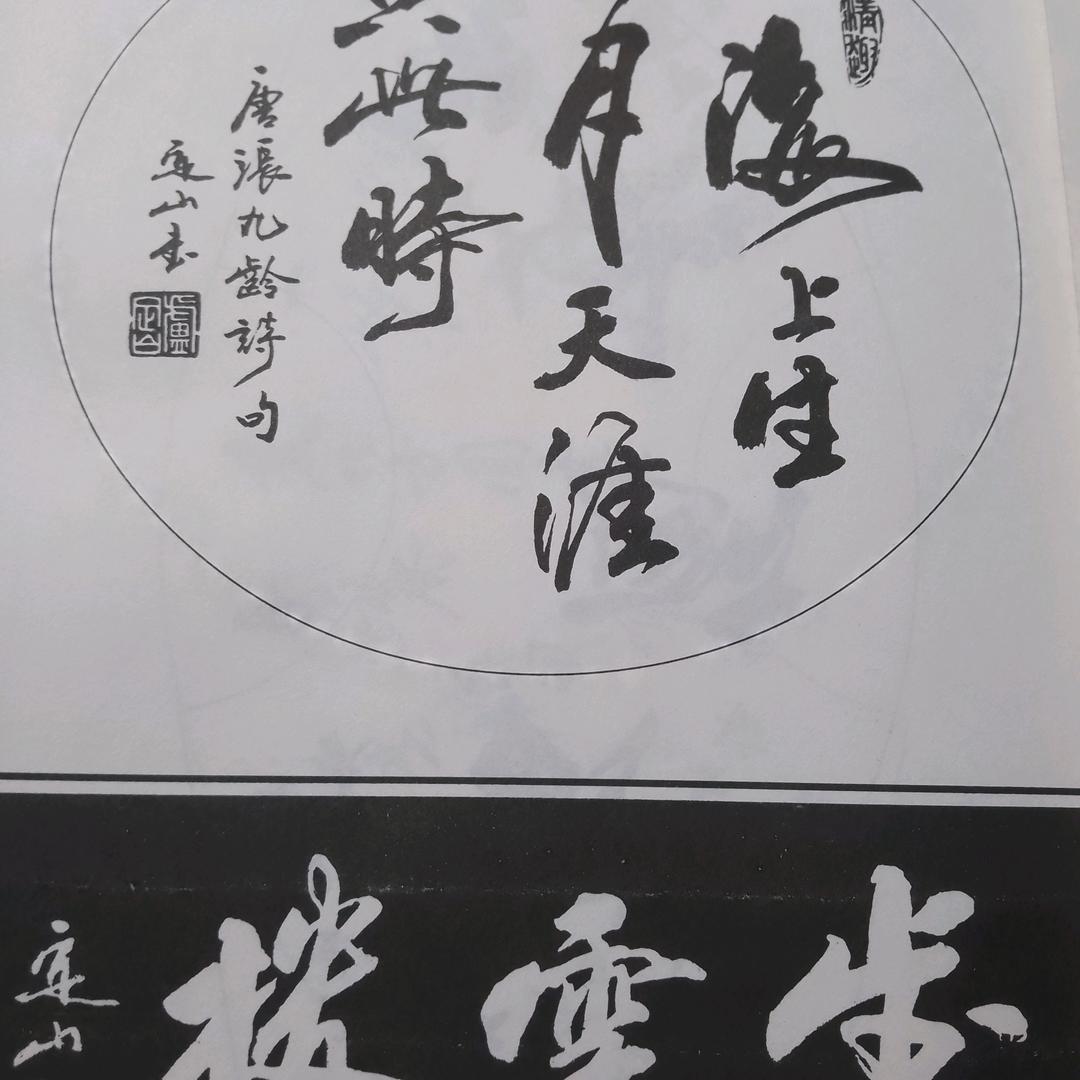 海上生
月天涯
共此時
唐張九齡詩句
定山書
盧定山
步雲樓
定山